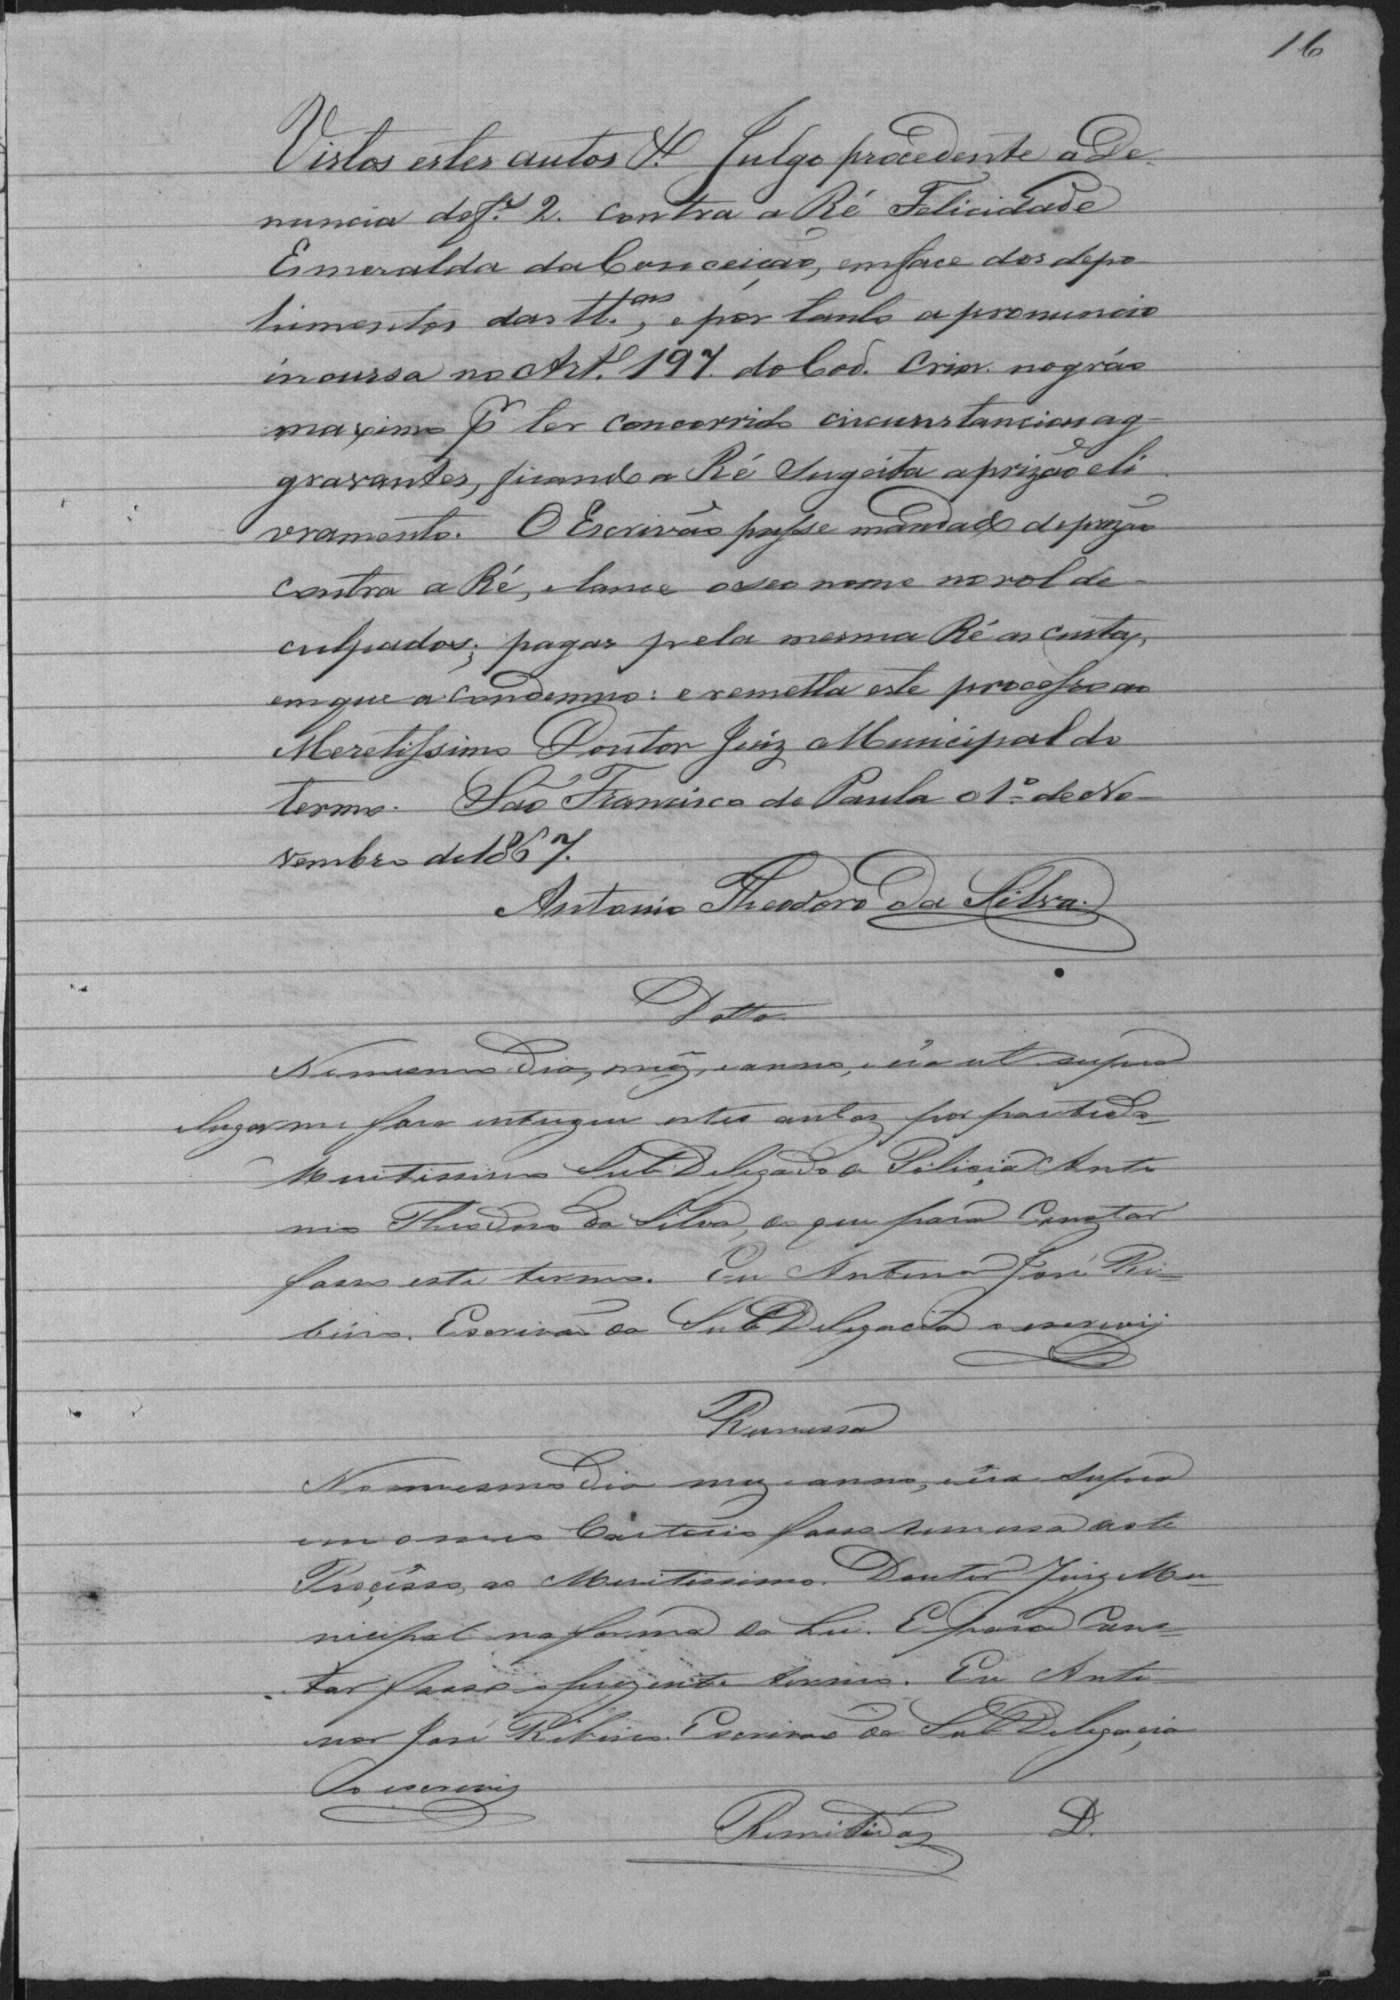 16
Vistos estes autos &. Julgo procedente a De-
nuncia de f.ˢ 2. contra a Ré Felicidade
Esmeralda da Conceição, em face dos depo
himentos das tt.ᵃˢ, e por tanto a pronuncio
incursa no Art.º 197. do Cod. Crim. no gráo
maximo pʳ ter concorrido circunstancias ag-
gravantes, ficando a Ré sugeita a prizão e li
vramento. O Escrivão passe mandado de prizão
contra a Ré, e lance o seo nome no rol de-
culpados; pagas pela mesma Ré as custas,
em que a condemno: e remetta este processo ao
Meretissimo Doutor Juiz Municipal do
termo. São Francisco de Paula 01º de No-
vembro de 1867.
Antonio Theodoro da Silva.
Datta
No mesmo dia, mêz, e anno, e éra ut supra
lugar me fora entregue estes autos por parte do
Meritissimo Sub Delegado de Policia Anto
nio Theodoro da Silva, do que para Constar
fasso este termo. Eu Antenor José Ri-
beiro. Escrivão da Sub Delegacia o escrevij
Remessa
No mesmo dia mez e anno, e éra supra
em o meu Cartorio fasso remessa deste
Proçésso, ao Meritissimo. Doutor Juiz Mu-
nicipal na forma da Lei. E para Cons-
tar fasso o prezente termo. Eu Ante
nor José Ribeiro. Escrivão da Sub Delegacia
o escrevij
Remitidos D.